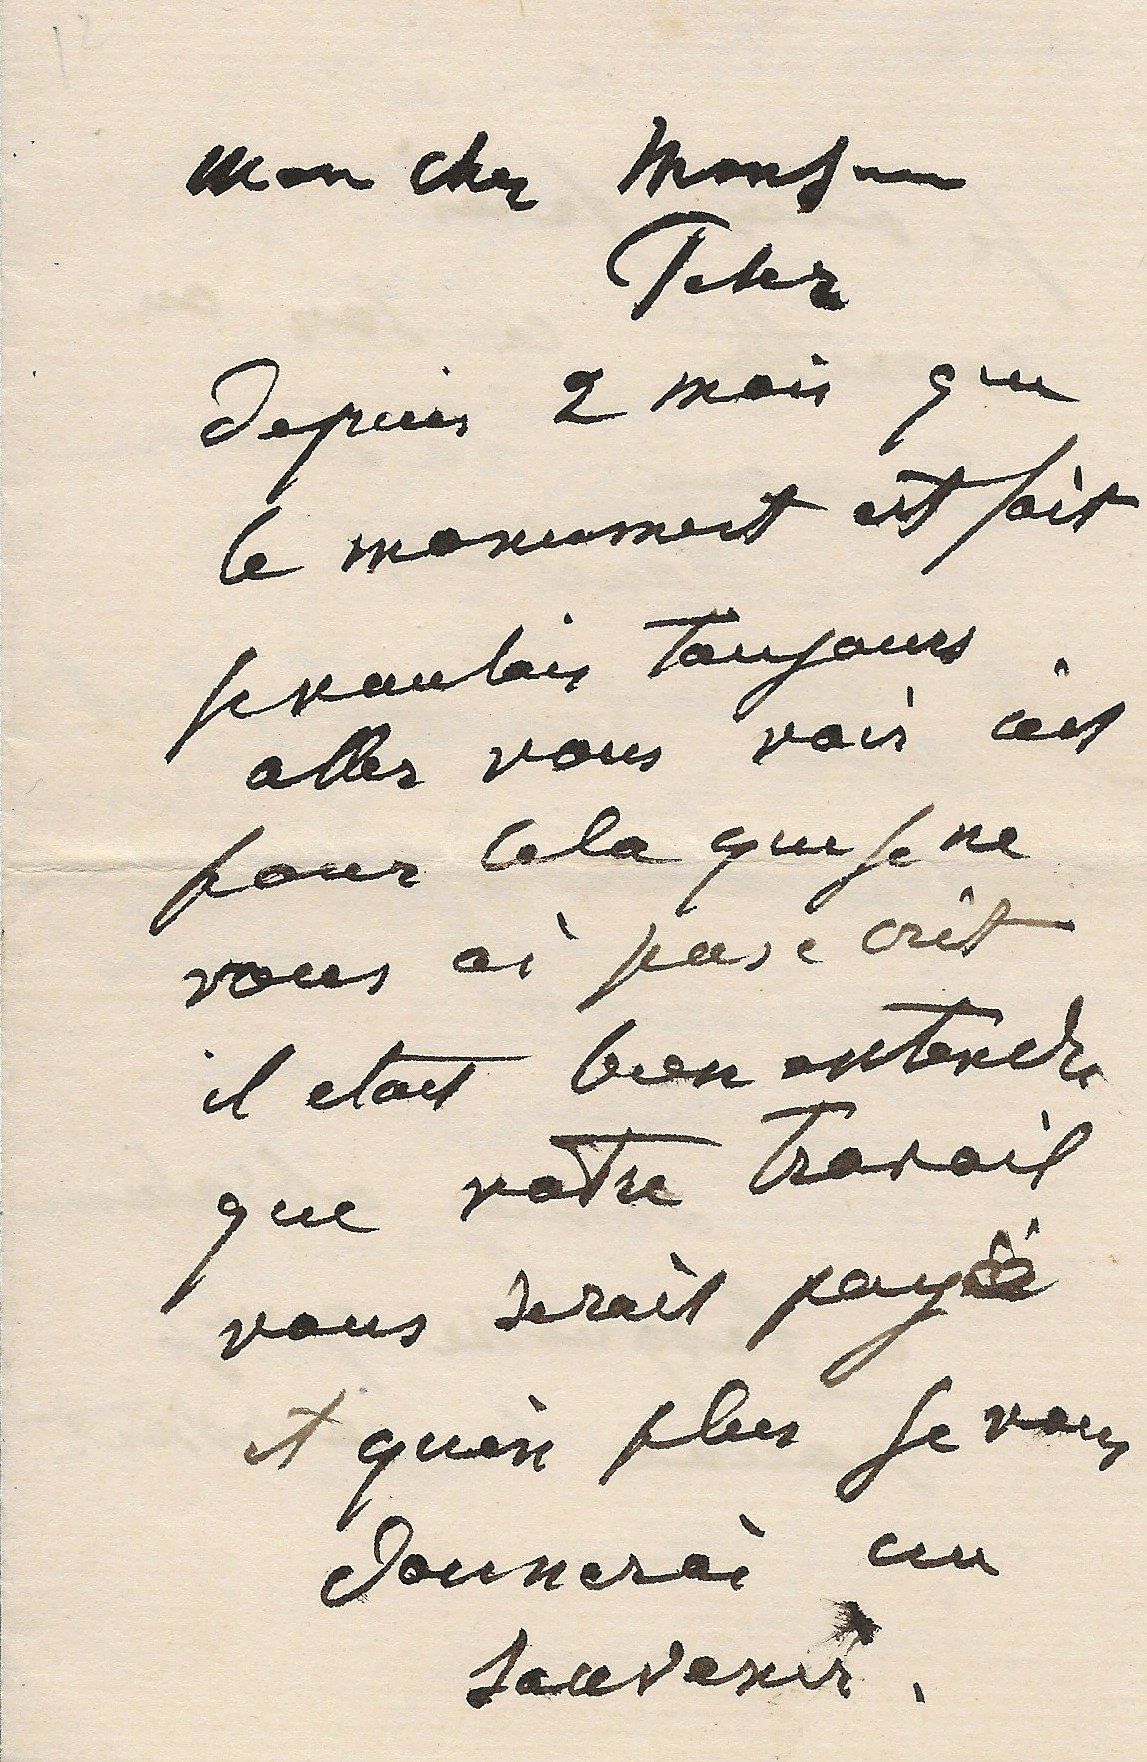 mon cher Monsieur
Peter
depuis 2 mois que
le monument est fait
je voulais toujours
aller vous voir c'est
pour cela que je ne
vous ai pas ecrit
il etait bien entendu
que votre travail
vous serait payé
et qu'en plus je vous
donnerai un
souvenir.